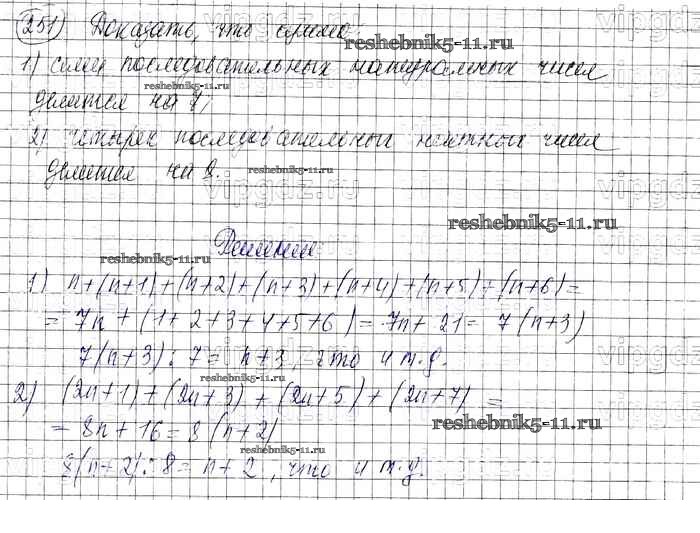 251) Доказать, что сумма:
reshebnik5-11.ru
1) семи последовательных натуральных чисел
reshebnik5-11.ru
делится на 7,
2) четырех последовательных нечетных чисел
делится на 8.
reshebnik5-11.ru
vipgdz.ru
reshebnik5-11.ru
Решение
reshebnik5-11.ru
1) n+(n+1)+(n+2)+(n+3)+(n+4)+(n+5)+(n+6)=
= 7n + (1+2+3+4+5+6) = 7n+21 = 7(n+3)
7(n+3) : 7 = n+3, что и т.д.
reshebnik5-11.ru
2) (2n+1)+(2n+3)+(2n+5)+(2n+7) =
= 8n+16 = 8(n+2)
reshebnik5-11.ru
reshebnik5-11.ru
8(n+2) : 8 = n+2, что и т.д.